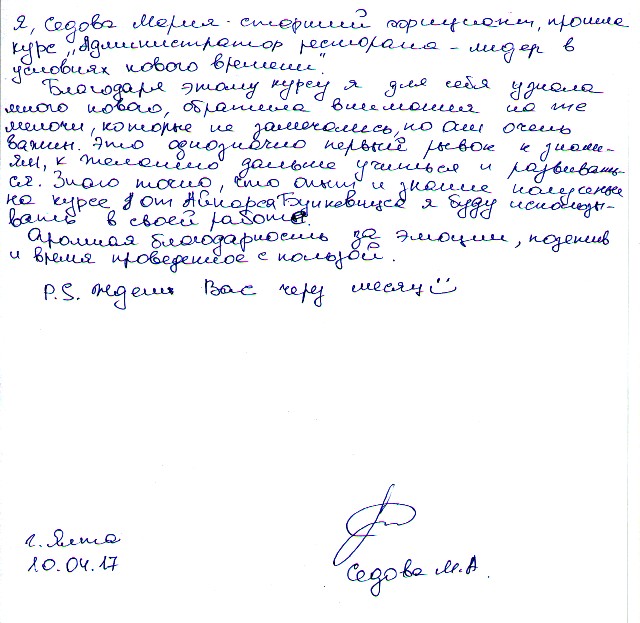 Я, Седова Мария - старший официант, прошла
курс „Администратор ресторана - лидер в
условиях нового времени".
Благодаря этому курсу я для себя узнала
много нового, обратила внимания на те
мелочи, которые не замечались, но они очень
важны. Это однозначно первый рывок к знани-
ям, к желанию дальше учиться и развивать-
ся. Знаю точно, что опыт и знание полученые
на курсе от Айварса я буду использо-
вать в своей работе.
Огромная благодарность за эмоции, позитив
и время проведенное с пользой.
P.S. Ждем Вас через месяц
г. Ялта
10.04.17
Седова М.А.